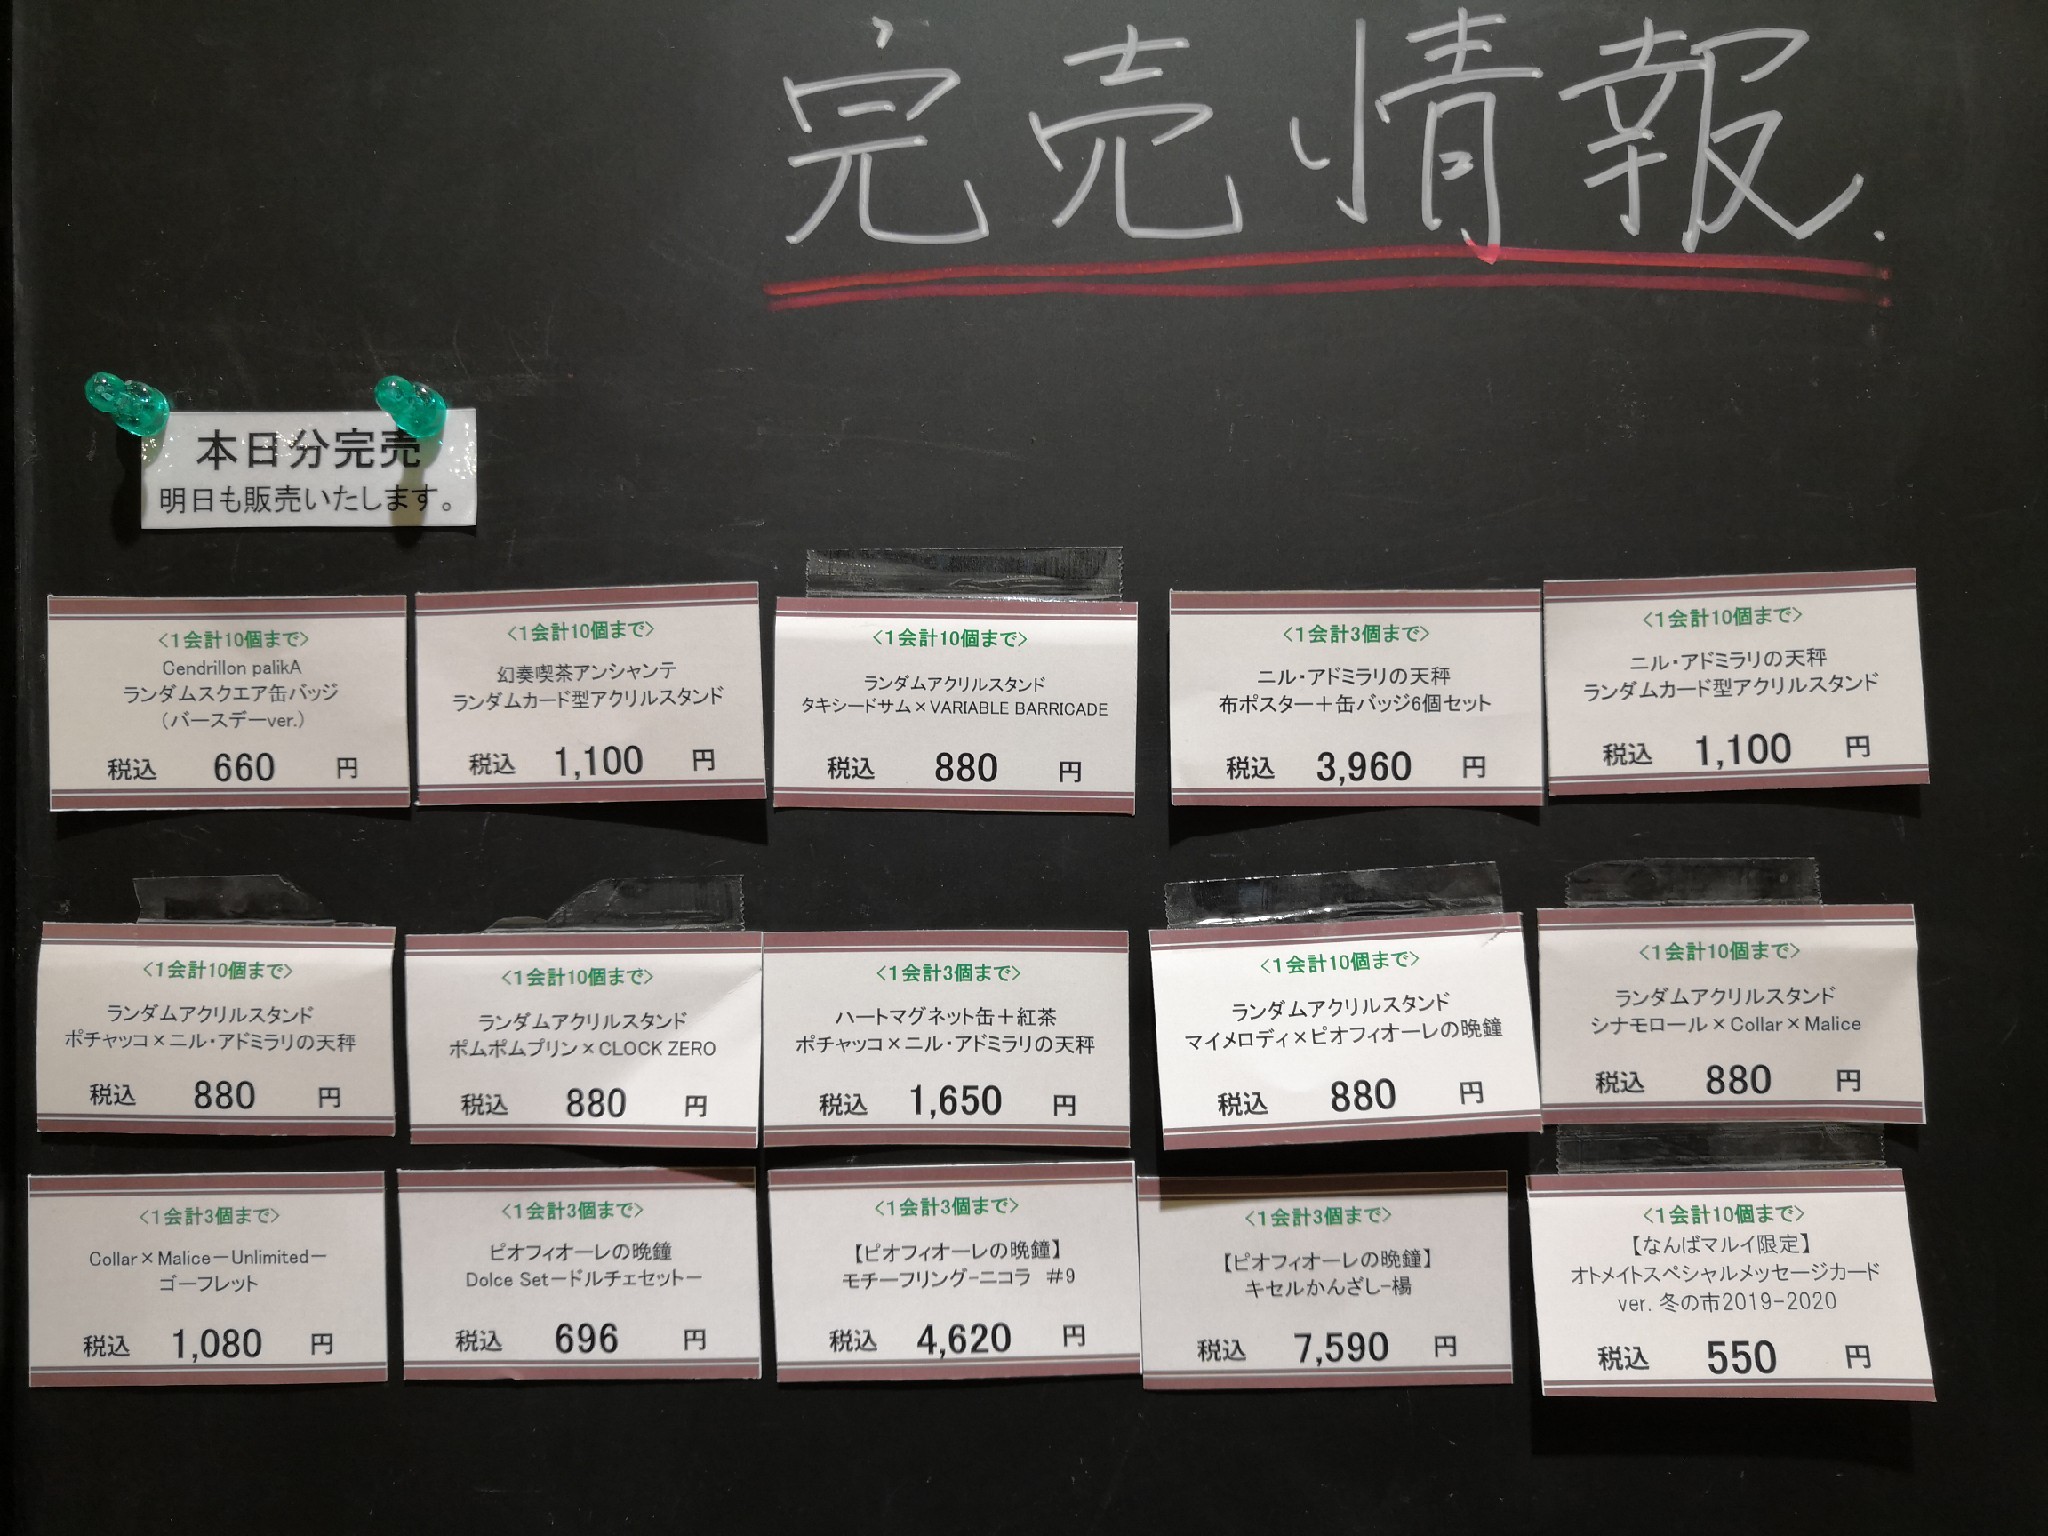 完売情報.
本日分完売
明日も販売いたします。
<1会計10個まで>
Cendrillon palikA
ランダムスクエア缶バッジ
(バースデーver.)
税込 660 円
<1会計10個まで>
幻奏喫茶アンシャンテ
ランダムカード型アクリルスタンド
税込 1,100 円
<1会計10個まで>
ランダムアクリルスタンド
タキシードサム×VARIABLE BARRICADE
税込 880 円
<1会計3個まで>
ニル・アドミラリの天秤
布ポスター+缶バッジ6個セット
税込 3,960 円
<1会計10個まで>
ニル・アドミラリの天秤
ランダムカード型アクリルスタンド
税込 1,100 円
<1会計10個まで>
ランダムアクリルスタンド
ポチャッコ×ニル・アドミラリの天秤
税込 880 円
<1会計10個まで>
ランダムアクリルスタンド
ポムポムプリン×CLOCK ZERO
税込 880 円
<1会計3個まで>
ハートマグネット缶+紅茶
ポチャッコ×ニル・アドミラリの天秤
税込 1,650 円
<1会計10個まで>
ランダムアクリルスタンド
マイメロディ×ピオフィオーレの晩鐘
税込 880 円
<1会計10個まで>
ランダムアクリルスタンド
シナモロール×Collar×Malice
税込 880 円
<1会計3個まで>
Collar×Malice－Unlimited－
ゴーフレット
税込 1,080 円
<1会計3個まで>
ピオフィオーレの晩鐘
Dolce Set－ドルチェセット－
税込 696 円
<1会計3個まで>
【ピオフィオーレの晩鐘】
モチーフリング-ニコラ #9
税込 4,620 円
<1会計3個まで>
【ピオフィオーレの晩鐘】
キセルかんざし-楊
税込 7,590 円
<1会計10個まで>
【なんばマルイ限定】
オトメイトスペシャルメッセージカード
ver. 冬の市2019-2020
税込 550 円